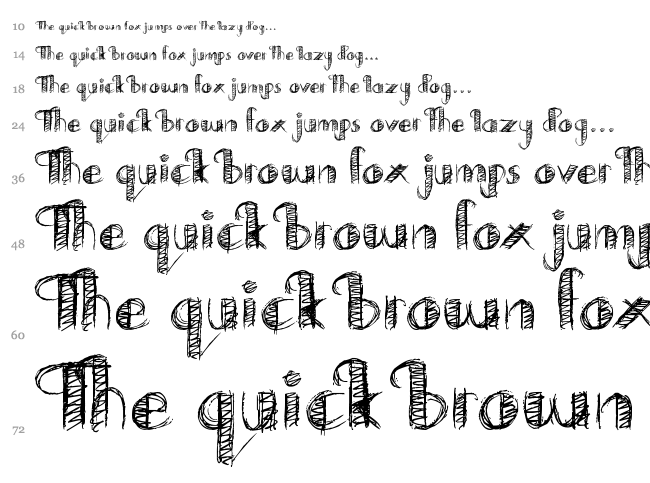 10 The quick brown fox jumps over the lazy dog...
14 The quick brown fox jumps over the lazy dog...
18 The quick brown fox jumps over the lazy dog...
24 The quick brown fox jumps over the lazy dog...
36 The quick brown fox jumps over Th
48 The quick brown fox jump
60 The quick brown fox
72 The quick brown